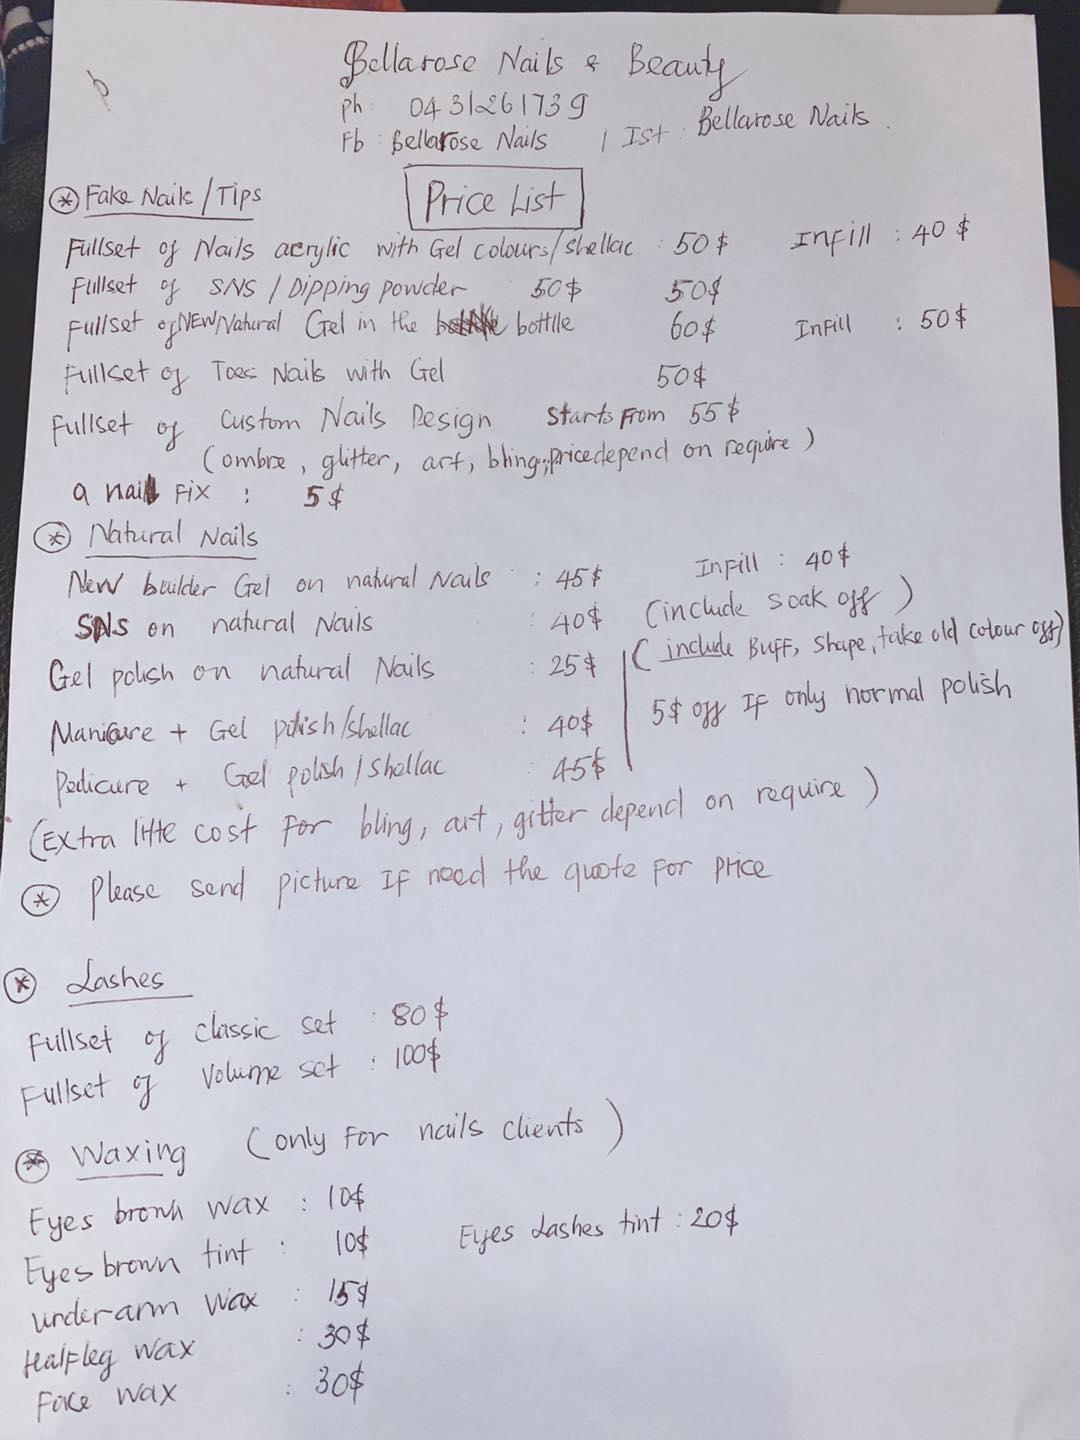 Bellarose Nails & Beauty
ph: 0431261739
Fb: Bellarose Nails | Ist: Bellarose Nails.
Price List
* Fake Nails / Tips
Fullset of Nails acrylic with Gel colours/shellac : 50$ Infill : 40$
Fullset of SNS / Dipping powder 50$ 50$
Fullset of NEW Natural Gel in the bottlle 60$ Infill : 50$
Fullset of Toes Nails with Gel 50$
Fullset of Custom Nails Design Starts From 55$
(ombre, glitter, art, bling, price depend on require)
a nail Fix : 5$
* Natural Nails
New builder Gel on natural Nails : 45$ Infill : 40$
SNS on natural Nails : 40$ (include soak off)
Gel polish on natural Nails : 25$ (include Buff, shape, take old colour off)
5$ off If only normal polish
Manicure + Gel polish/shellac : 40$
Pedicure + Gel polish / Shellac : 45$
(Extra litte cost For bling, art, gitter depend on require)
* Please send picture If need the quote For price
* Lashes
Fullset of classic set : 80$
Fullset of Volume set : 100$
* Waxing (only For nails clients)
Eyes brown wax : 10$
Eyes brown tint : 10$ Eyes Lashes tint : 20$
under arm Wax : 15$
Half leg wax : 30$
Face wax : 30$